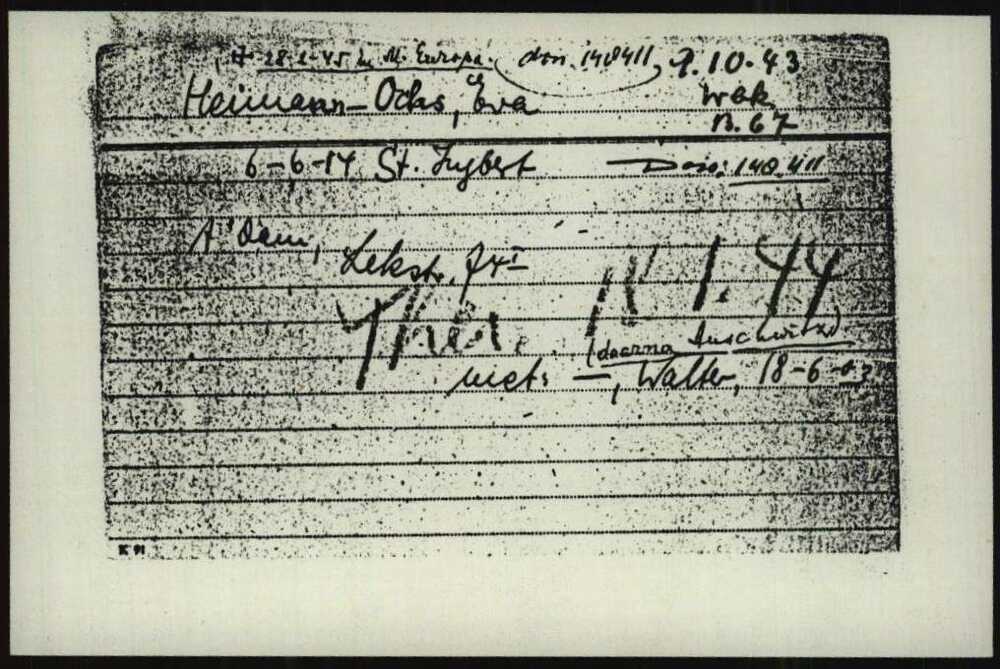 † 28-2-45 in M. Europa. (don. 140411) 9.10.43
Heimann-Ochs, Eva Wbk
B. 67
6-6-14 St. Ingbert — Doss: 140.411
A'dam, Lekstr. I
Ther. 18 1.44
(daarna Auschwitz)
met: —, Walter, 18-6-03
K 91